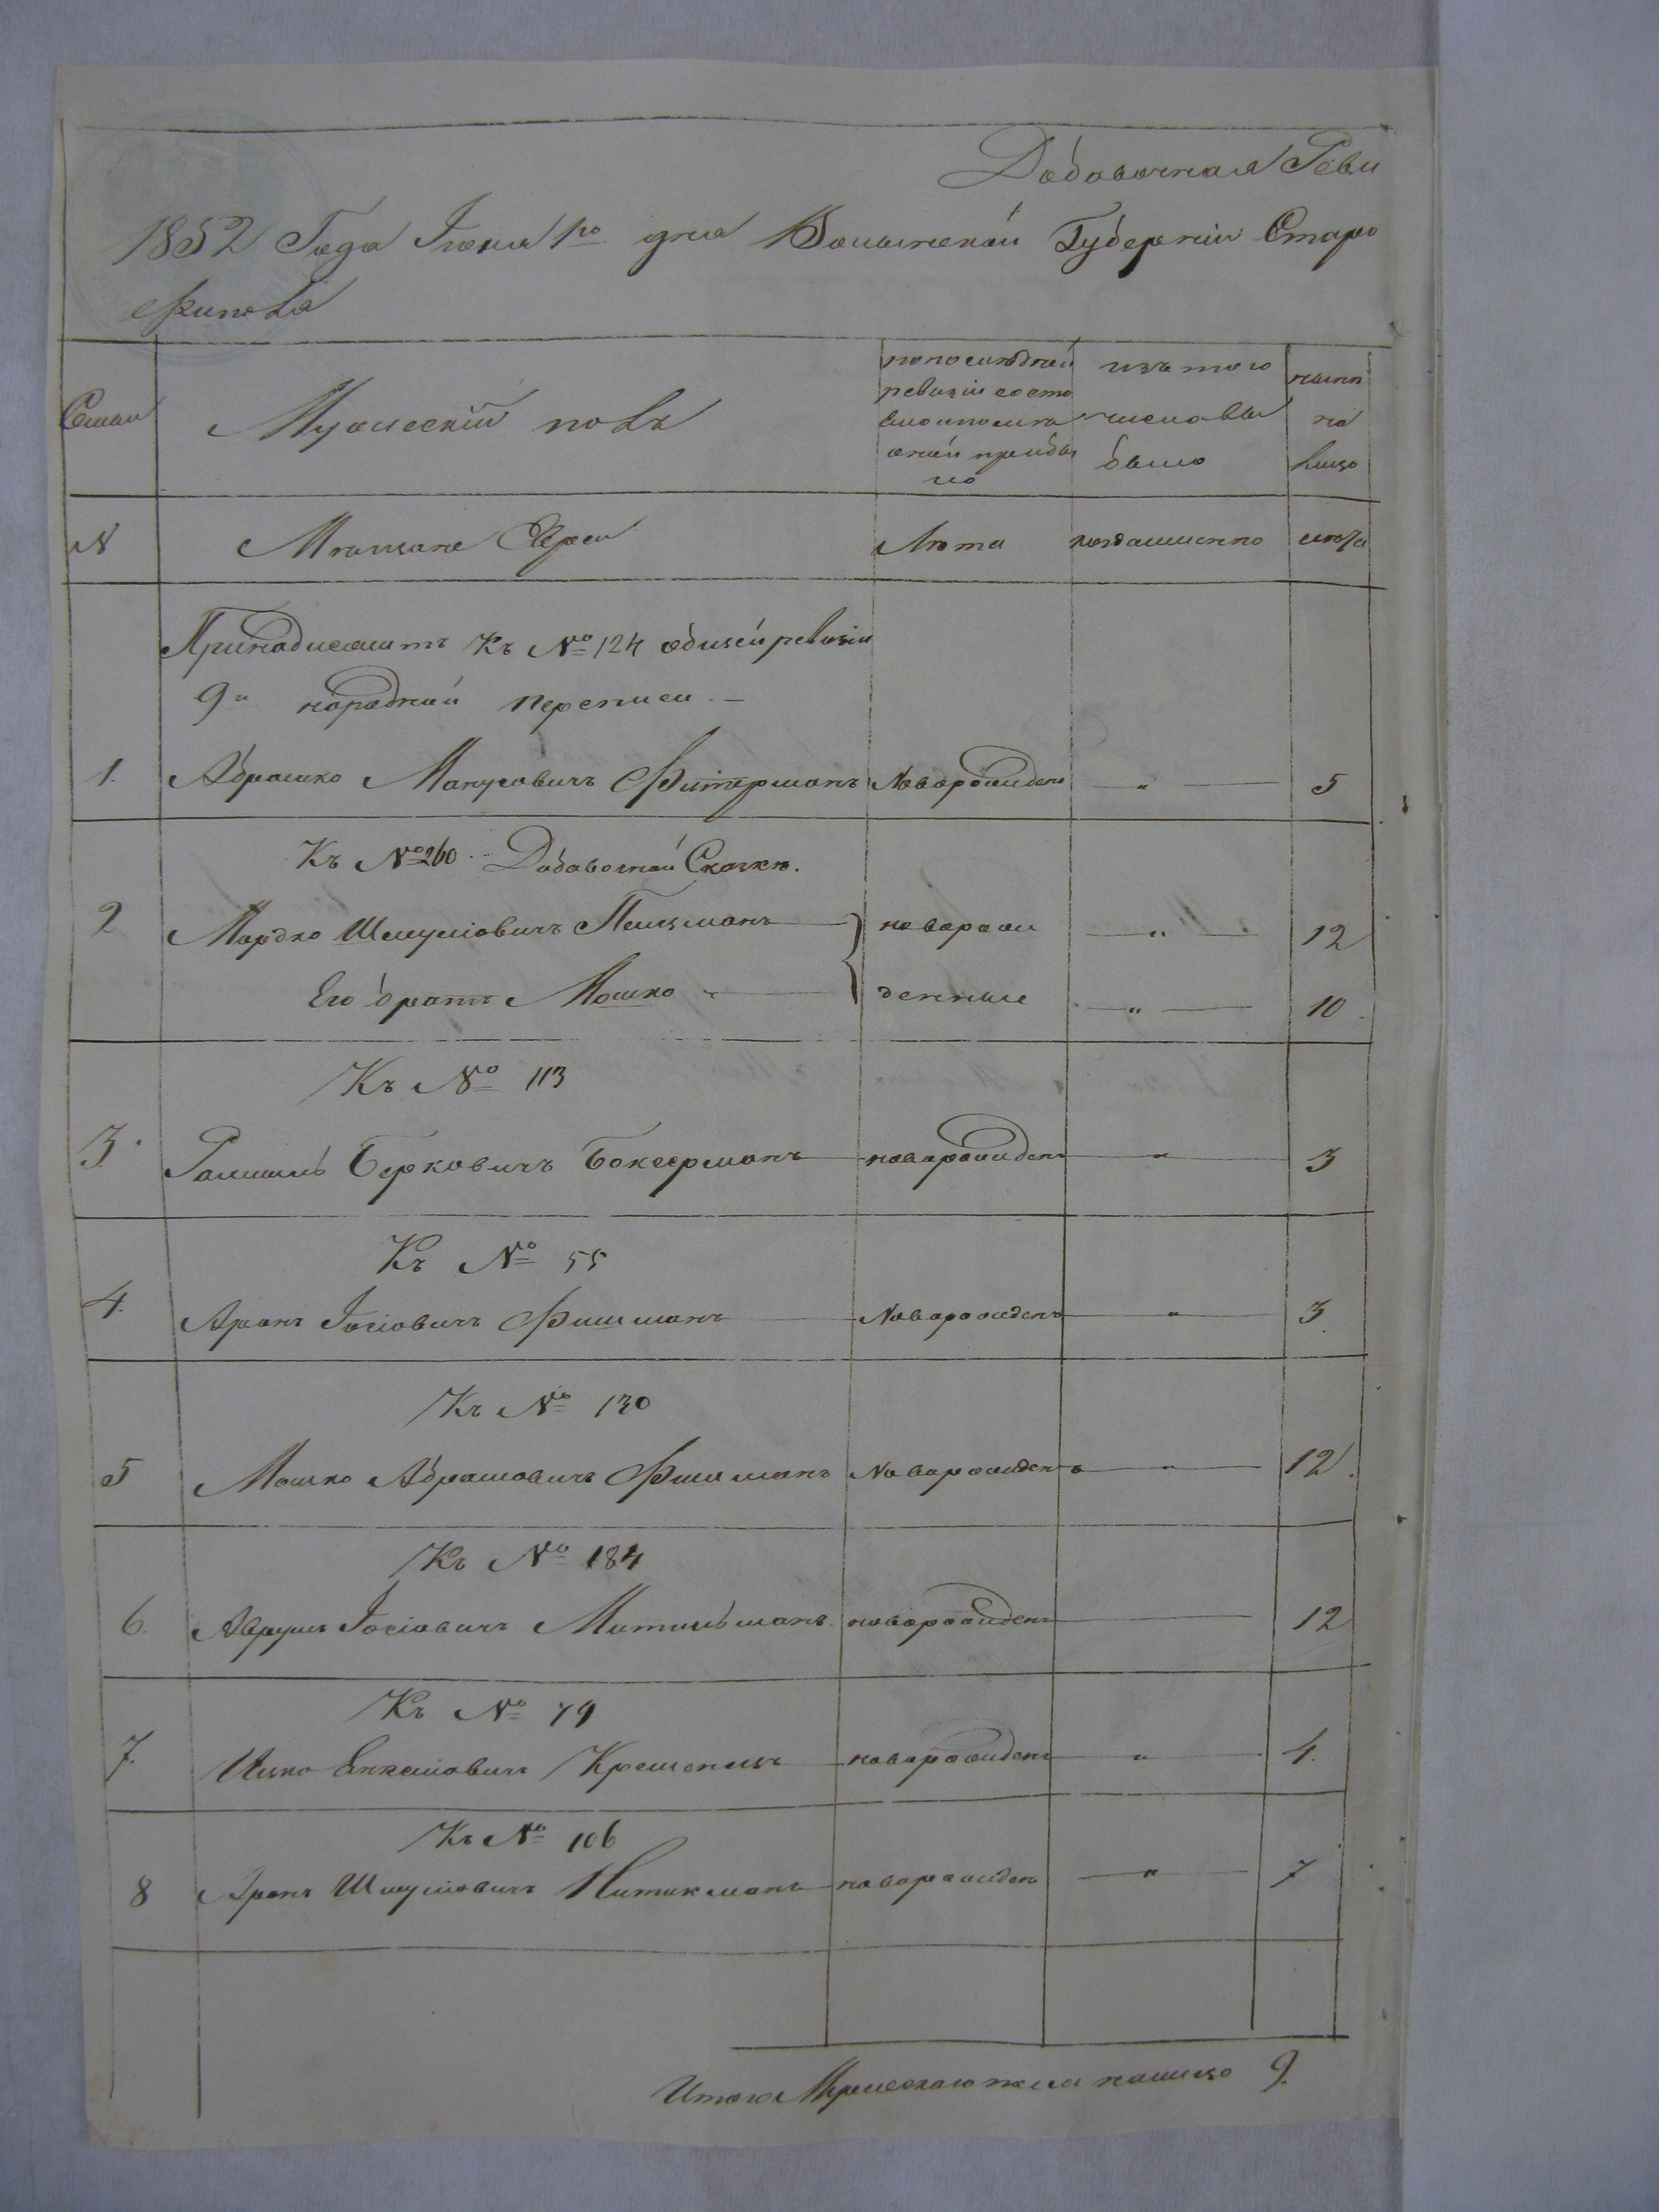 Добавочная Реви
1852 Года Іюня 1го дня Волынской Губерніи Старо
Семьи
Мужескій полъ
по последней
ревизіи состо
яло и после
оной прибы
ло
изъ того
числа вы
было
ныне
на
лицо
№
Мещане Евреи
Лета
когда именно
лета
Принадлежитъ Къ № 124 общей ревизіи
9й народной переписи. —
1. Абрамко Манусовичъ Фитерманъ Новорожденъ — „ — 5
Къ № 260 Добавочной Сказке.
2 Мордко Шмулiовичъ Пельцманъ — } новорож — „ — 12
Его братъ Мошко — денные — „ — 10
Къ № 113
3. Берковичъ Боксерманъ — новорожденъ — „ — 3
Къ № 55
4. Аронъ Іосіовичъ Фишманъ — Новорожденъ — „ — 3
Къ № 130
5 Мошко Абрамовичъ Фишманъ Новорожденъ — „ — 12.
Къ № 184
6. Аврумъ Іосіовичъ Мительманъ новорожденъ — 12
Къ № 79
7. Ицко Янкеліовичъ Кременецъ — новорожденъ — „ — 4.
Къ № 106
8 Аронъ Шмуліовичъ — новорожденъ — „ — 7
Итого Мужескаго пола налицо 9.